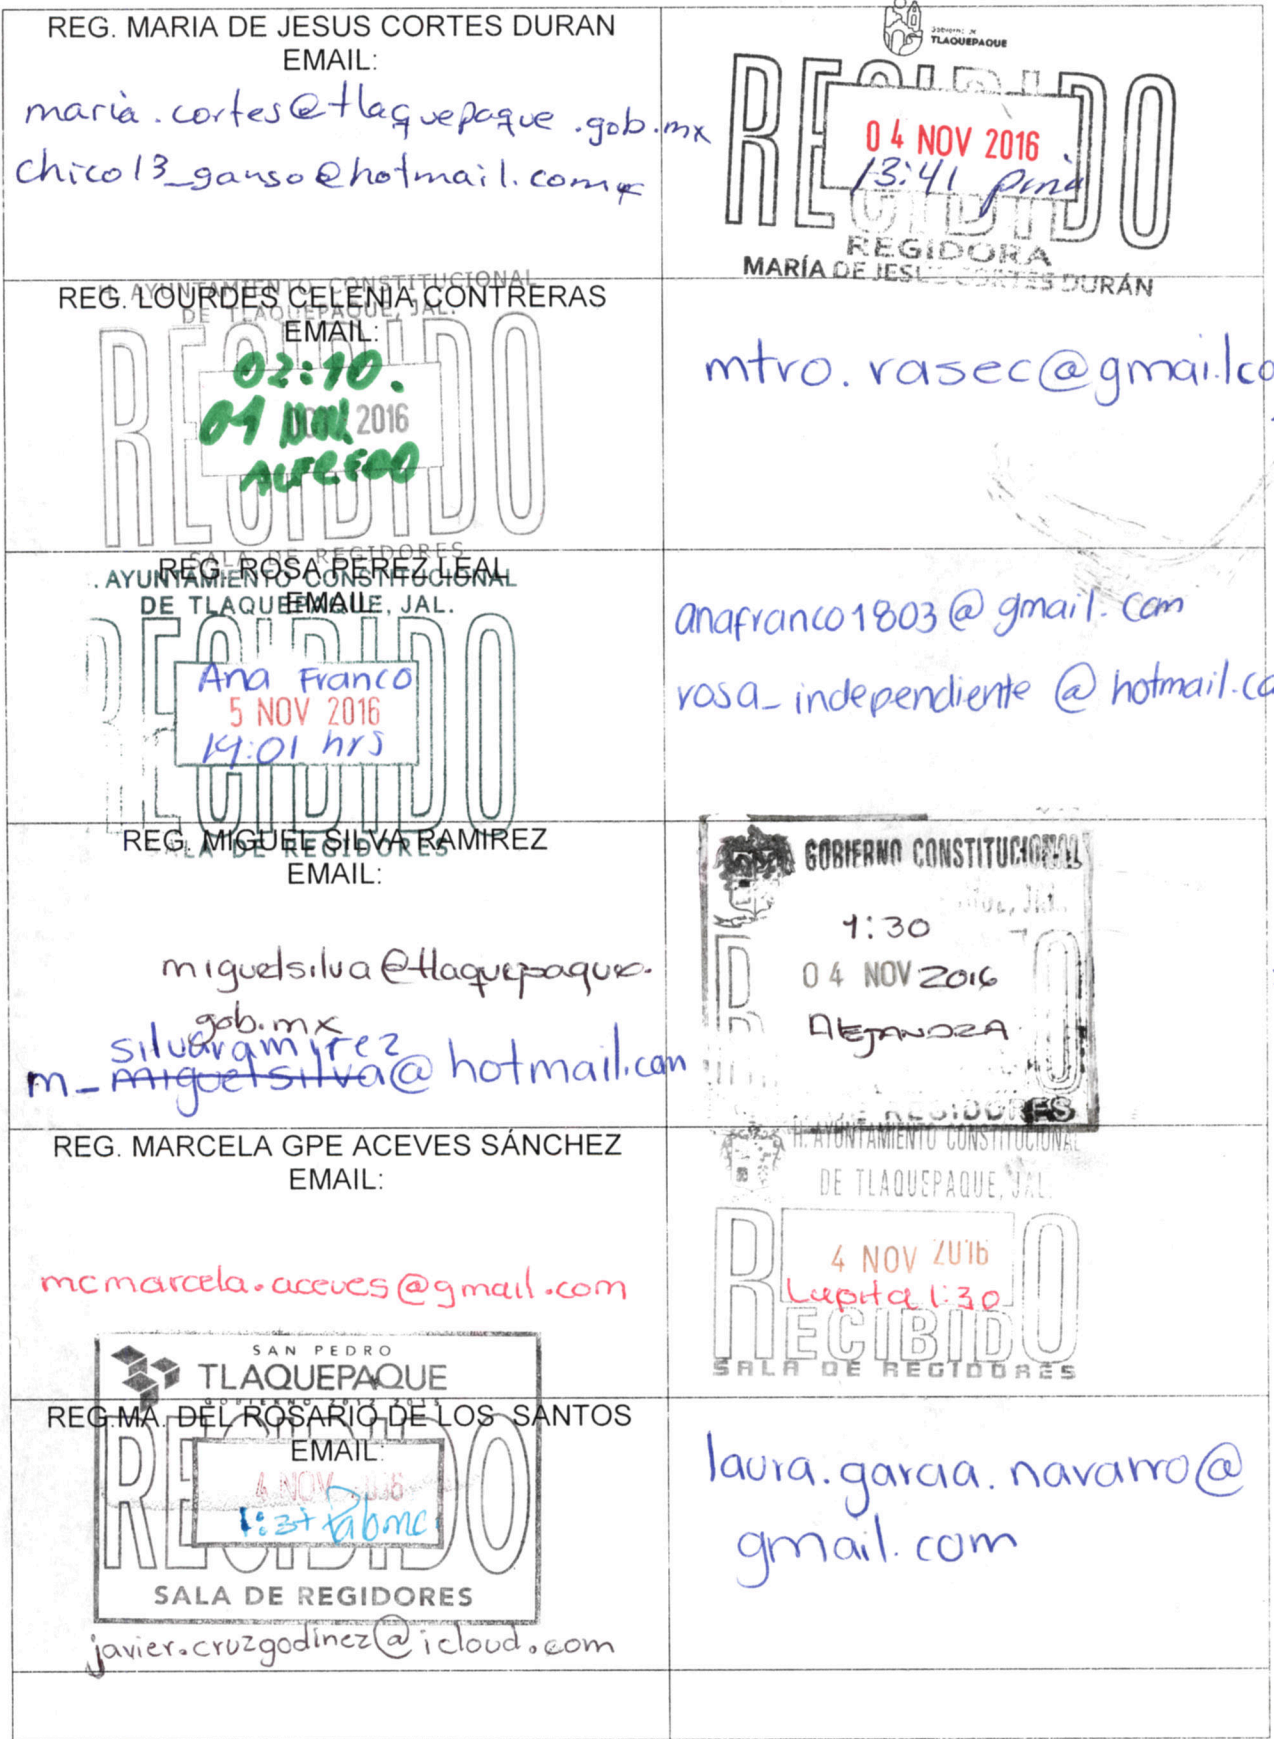 REG. MARIA DE JESUS CORTES DURAN
EMAIL:
maria.cortes@tlaquepaque.gob.mx
chico13_ganso@hotmail.com
Gobierno de
TLAQUEPAQUE
RECIBIDO
04 NOV 2016
13:41
REGIDORA
MARÍA DE JESUS CORTES DURÁN
H. AYUNTAMIENTO CONSTITUCIONAL
DE TLAQUEPAQUE, JAL.
REG. LOURDES CELENIA CONTRERAS
EMAIL:
RECIBIDO
02:10.
04 2016
ALFREDO
SALA DE REGIDORES
mtro.rasec@gmail.co
REG. ROSA PEREZ LEAL
EMAIL:
. AYUNTAMIENTO CONSTITUCIONAL
DE TLAQUEPAQUE, JAL.
RECIBIDO
Ana Franco
5 NOV 2016
14:01 hrs
SALA DE REGIDORES
anafranco1803@gmail.com
rosa_independiente@hotmail.co
REG. MIGUEL SILVA RAMIREZ
EMAIL:
miguelsilva@tlaquepaque.
gob.mx
silvaramirez
m_miguelsilva@hotmail.com
GOBIERNO CONSTITUCIONAL
1:30
04 NOV 2016
ALEJANDRA
DE REGIDORES
REG. MARCELA GPE ACEVES SÁNCHEZ
EMAIL:
mcmarcela.aceves@gmail.com
H. AYUNTAMIENTO CONSTITUCIONAL
DE TLAQUEPAQUE, JAL.
4 NOV 2016
Lupita 1:30
RECIBIDO
SALA DE REGIDORES
SAN PEDRO
TLAQUEPAQUE
REG.MA. DEL ROSARIO DE LOS SANTOS
EMAIL:
RECIBIDO
4 NOV
SALA DE REGIDORES
javier.cruzgodinez@icloud.com
laura.garcia.navarro@
gmail.com